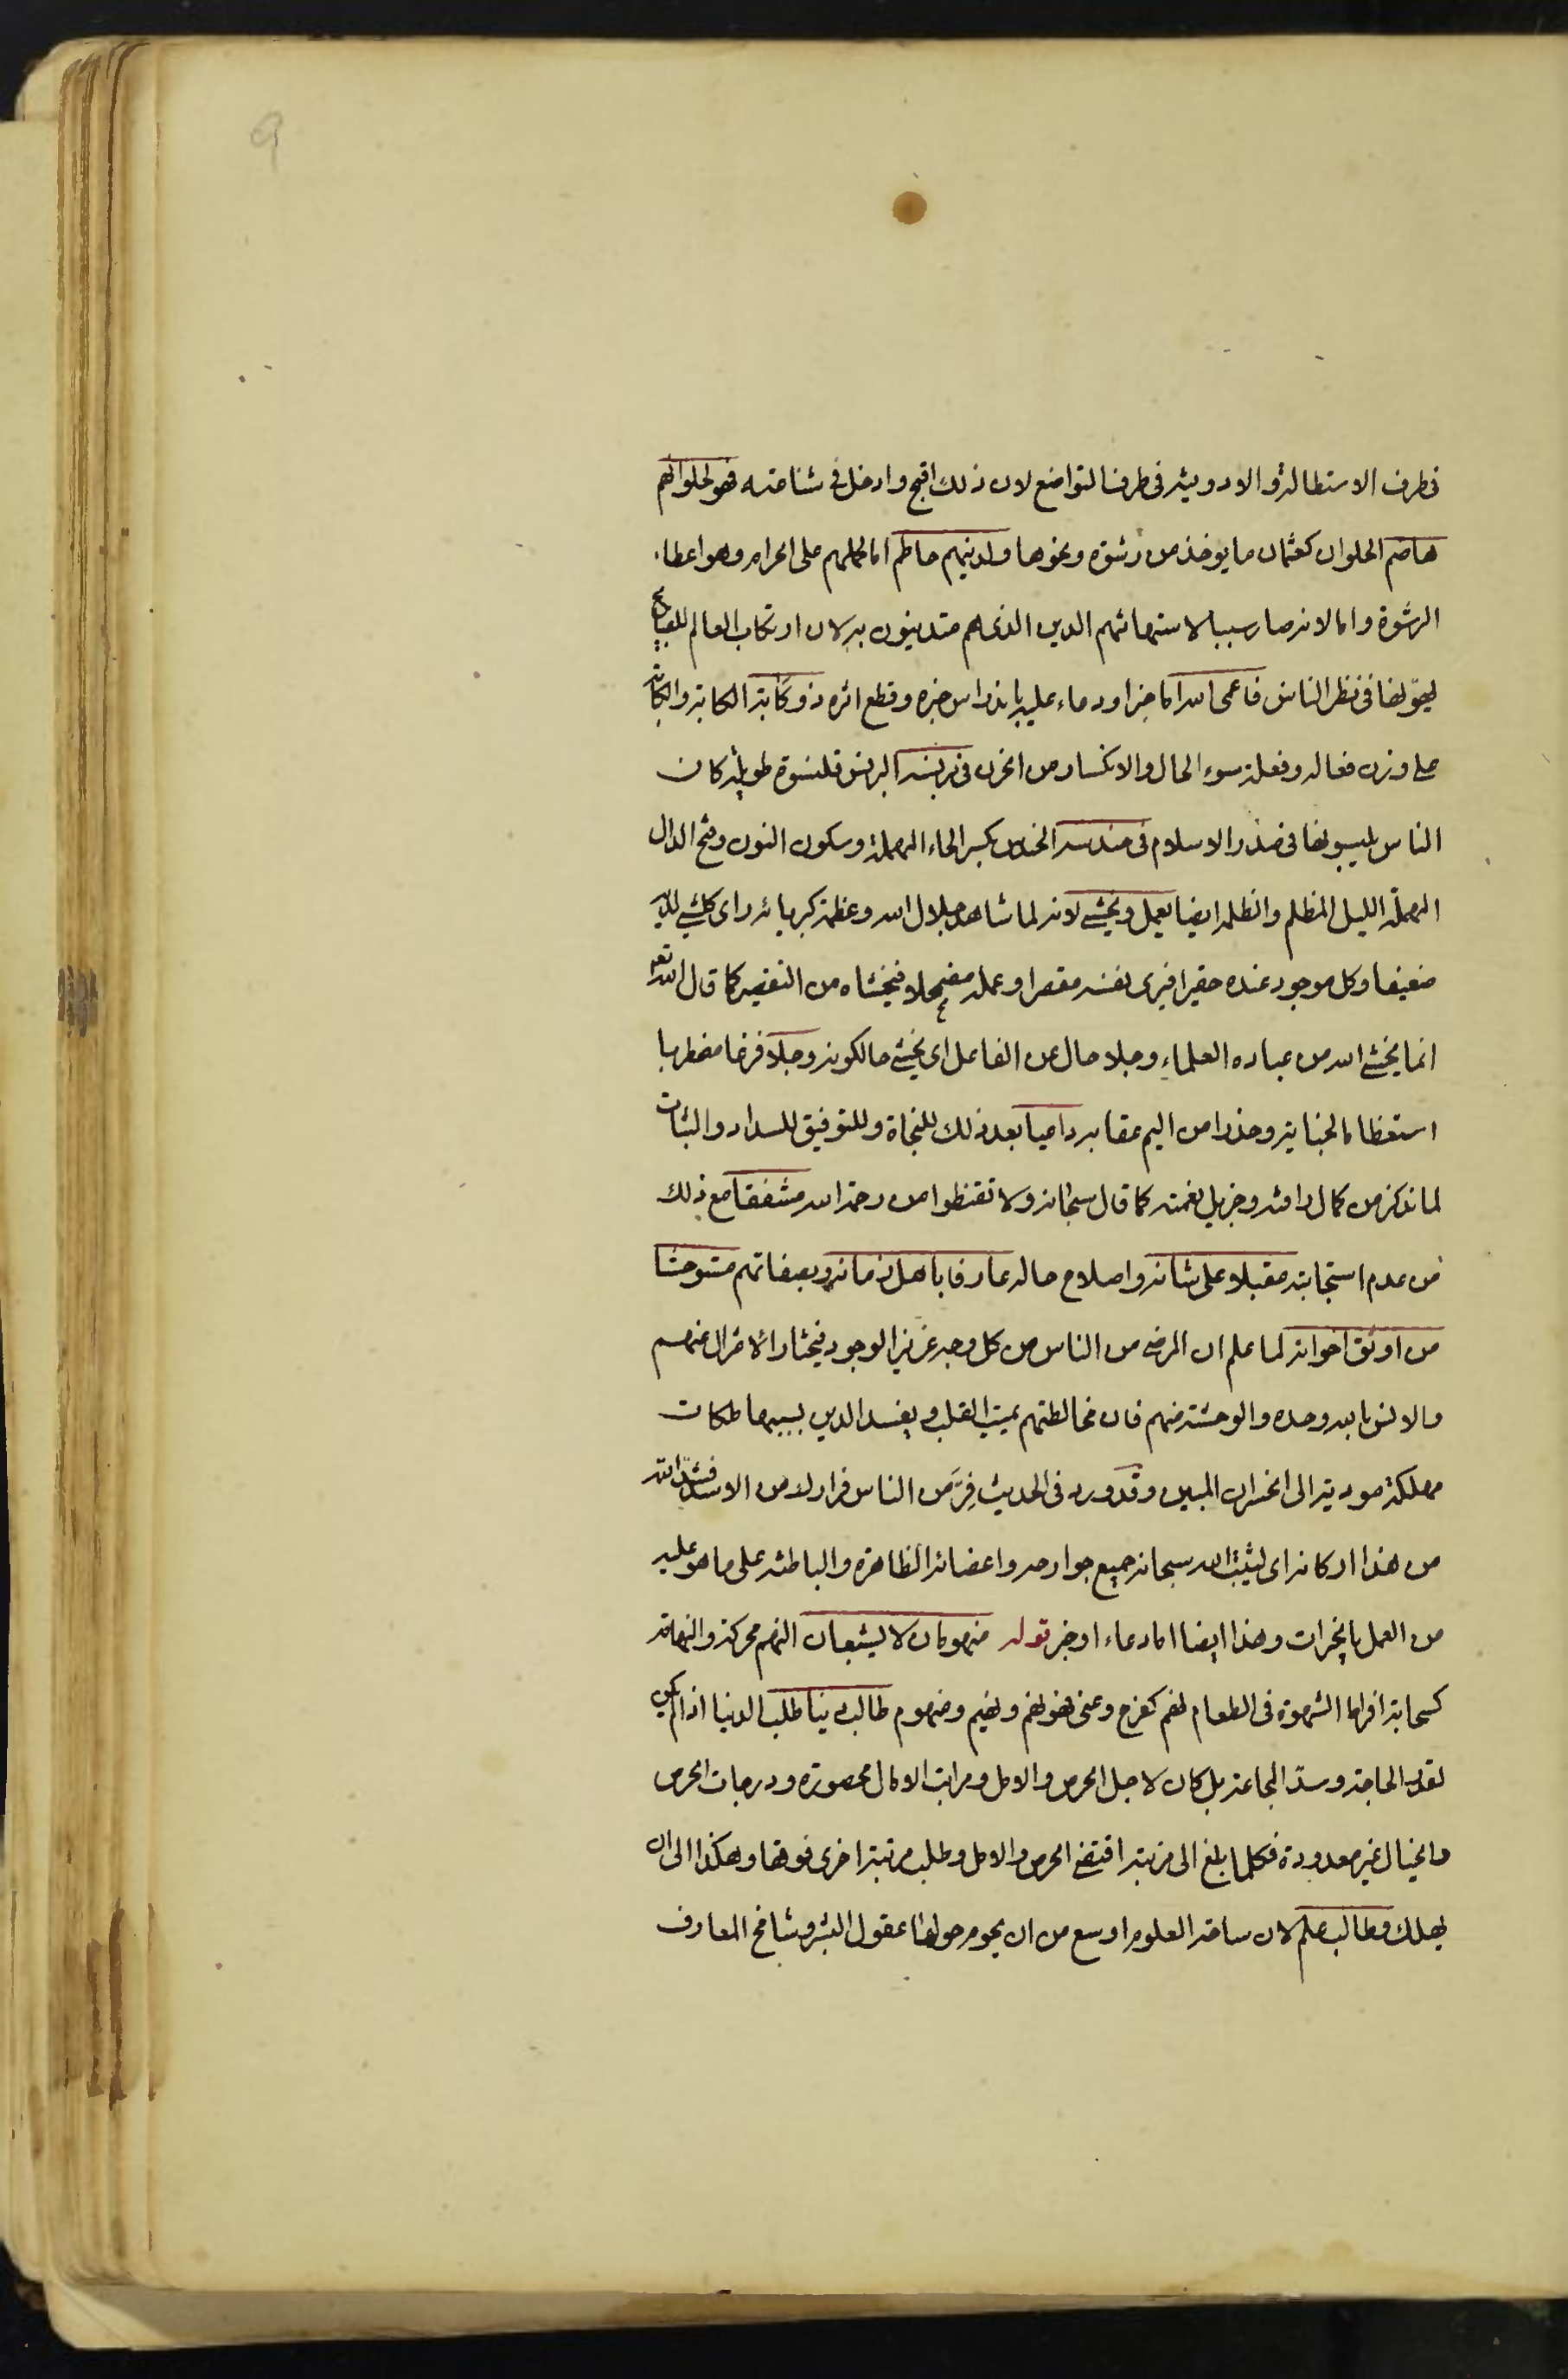 9
فى طرف الاستطالة والادوية فى طرف التواضع لان ذلك اقبح وادخل فى شناعته فهو لحلوائهم
هاضم الحلوان كعثمان ما يوخذ من رشوة ونحوها ولدينهم حاطم اما لحملهم على الحرام وهو اعطاء
الرشوة واما لانه صار سببا لاستهانتهم الدين الذى هم متدينون به لان ارتكاب العالم للقبايح
يهونها فى نظر الناس فاعمى الله اما خبر او دعاء عليه بانذراس خبره وقطع اثره ذو كآبة الكابة والكأبة
على وزن فعالة وفعلة سوء الحال والانكسار من الحزن فى برنسه البرنس قلنسوة طويلة كان
الناس يلبسونها فى صدر الاسلام فى حندسه الحندس بكسر الحاء المهملة وسكون النون وفتح الدال
المهملة الليل المظلم والظلمة ايضا يعمل ويخشى لانه لما شاهد جلال الله وعظمة كبريائه راى كل شئ لديه
ضعيفا وكل موجود عنده حقيرا فيرى نفسه مقصرا وعمله مضمحلا فيخشاه من التقصير كما قال الله تعه
انما يخشى الله من عباده العلماء وجلا حال عن الفاعل اى يخشى حالكونه وجلا فزعا مضطربا
استعظاما لجنايته وحذرا من اليم عقابه داعيا بعد ذلك للنجاة وللتوفيق للسداد والثبات
لما تذكر من كمال رافته وجزيل نعمته كما قال سبحانه ولا تقنطوا من رحمة الله مشفقا مع ذلك
من عدم استجابته مقبلا على شانه واصلاح حاله عارفا باهل زمانه وبصفاتهم مستوحشا
من اوثق اخوانه لما علم ان المرضى من الناس من كل وجه عزيز الوجود فيختار الاعتزال عنهم
والانس بالله وحده والوحشة منهم فان مخالطتهم يميت القلب ويفسد الدين بسببها ملكات
مهلكة مودية الى الخسران المبين وقد ورد فى الحديث فِرَّ من الناس فرارك من الاسد فشد الله
من هذا اركانه اى ليثبت الله سبحانه جميع جوارحه واعضائه الظاهرة والباطنة على ما هو عليه
من العمل بالخيرات وهذا ايضا اما دعاء او خبر قوله منهومان لا يشبعان النهم محركة والنهامة
كسحابة افراط الشهوة فى الطعام نهم كفرح وعنى فهو نهم ونهيم ومنهوم طالب دنيا طلب الدنيا اذا لم يكن
لقدر الحاجة وسدّ المجاعة بل كان لاجل الحرص والامل ومراتب الامال محصورة ودرجات الحرص
والخيال غير معدودة فكلما بلغ الى مرتبة اقتضى الحرص والامل وطلب مرتبة اخرى فوقها وهكذا الى ان
يهلك وطالب علم لان ساحة العلوم اوسع من ان يحوم حولها عقول البشر وشامخ المعارف